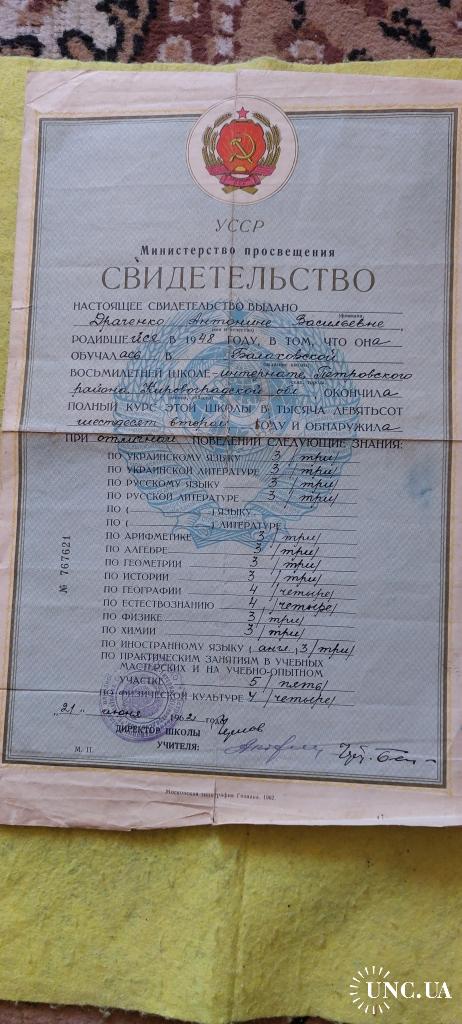 УССР
Министерство просвещения
СВИДЕТЕЛЬСТВО
НАСТОЯЩЕЕ СВИДЕТЕЛЬСТВО ВЫДАНО
(фамилия,
Драченко Антонине Васильевне,
имя и отчество)
РОДИВШЕЙСЯ В 1948 ГОДУ, В ТОМ, ЧТО ОНА
ОБУЧАЛАСЬ В
ВОСЬМИЛЕТНЕЙ ШКОЛЕ-интернате Петровского
района Кировоградской обл ОКОНЧИЛА
ПОЛНЫЙ КУРС ЭТОЙ ШКОЛЫ В ТЫСЯЧА ДЕВЯТЬСОТ
шестдесят втором ГОДУ И ОБНАРУЖИЛА
ПРИ отличном ПОВЕДЕНИИ СЛЕДУЮЩИЕ ЗНАНИЯ:
ПО УКРАИНСКОМУ ЯЗЫКУ 3 /три/
ПО УКРАИНСКОЙ ЛИТЕРАТУРЕ 3 /три/
ПО РУССКОМУ ЯЗЫКУ 3 /три/
ПО РУССКОЙ ЛИТЕРАТУРЕ 3 /три/
ПО ( ) ЯЗЫКУ
ПО ( ) ЛИТЕРАТУРЕ
ПО АРИФМЕТИКЕ 3 /три/
ПО АЛГЕБРЕ 3 /три/
ПО ГЕОМЕТРИИ 3 /три/
ПО ИСТОРИИ 3 /три/
ПО ГЕОГРАФИИ 4 /четыре/
ПО ЕСТЕСТВОЗНАНИЮ 4 /четыре/
ПО ФИЗИКЕ 3 /три/
ПО ХИМИИ 3 /три/
ПО ИНОСТРАННОМУ ЯЗЫКУ (англ.) 3 /три/
ПО ПРАКТИЧЕСКИМ ЗАНЯТИЯМ В УЧЕБНЫХ
МАСТЕРСКИХ И НА УЧЕБНО-ОПЫТНОМ
УЧАСТКЕ 5 /пять/
ПО ФИЗИЧЕСКОЙ КУЛЬТУРЕ 4 /четыре/
"21" июня 1962 ГОДА
ДИРЕКТОР ШКОЛЫ
М. П. УЧИТЕЛЯ:
№ 767621
Московская типография Гознака. 1962.
UNC.UA